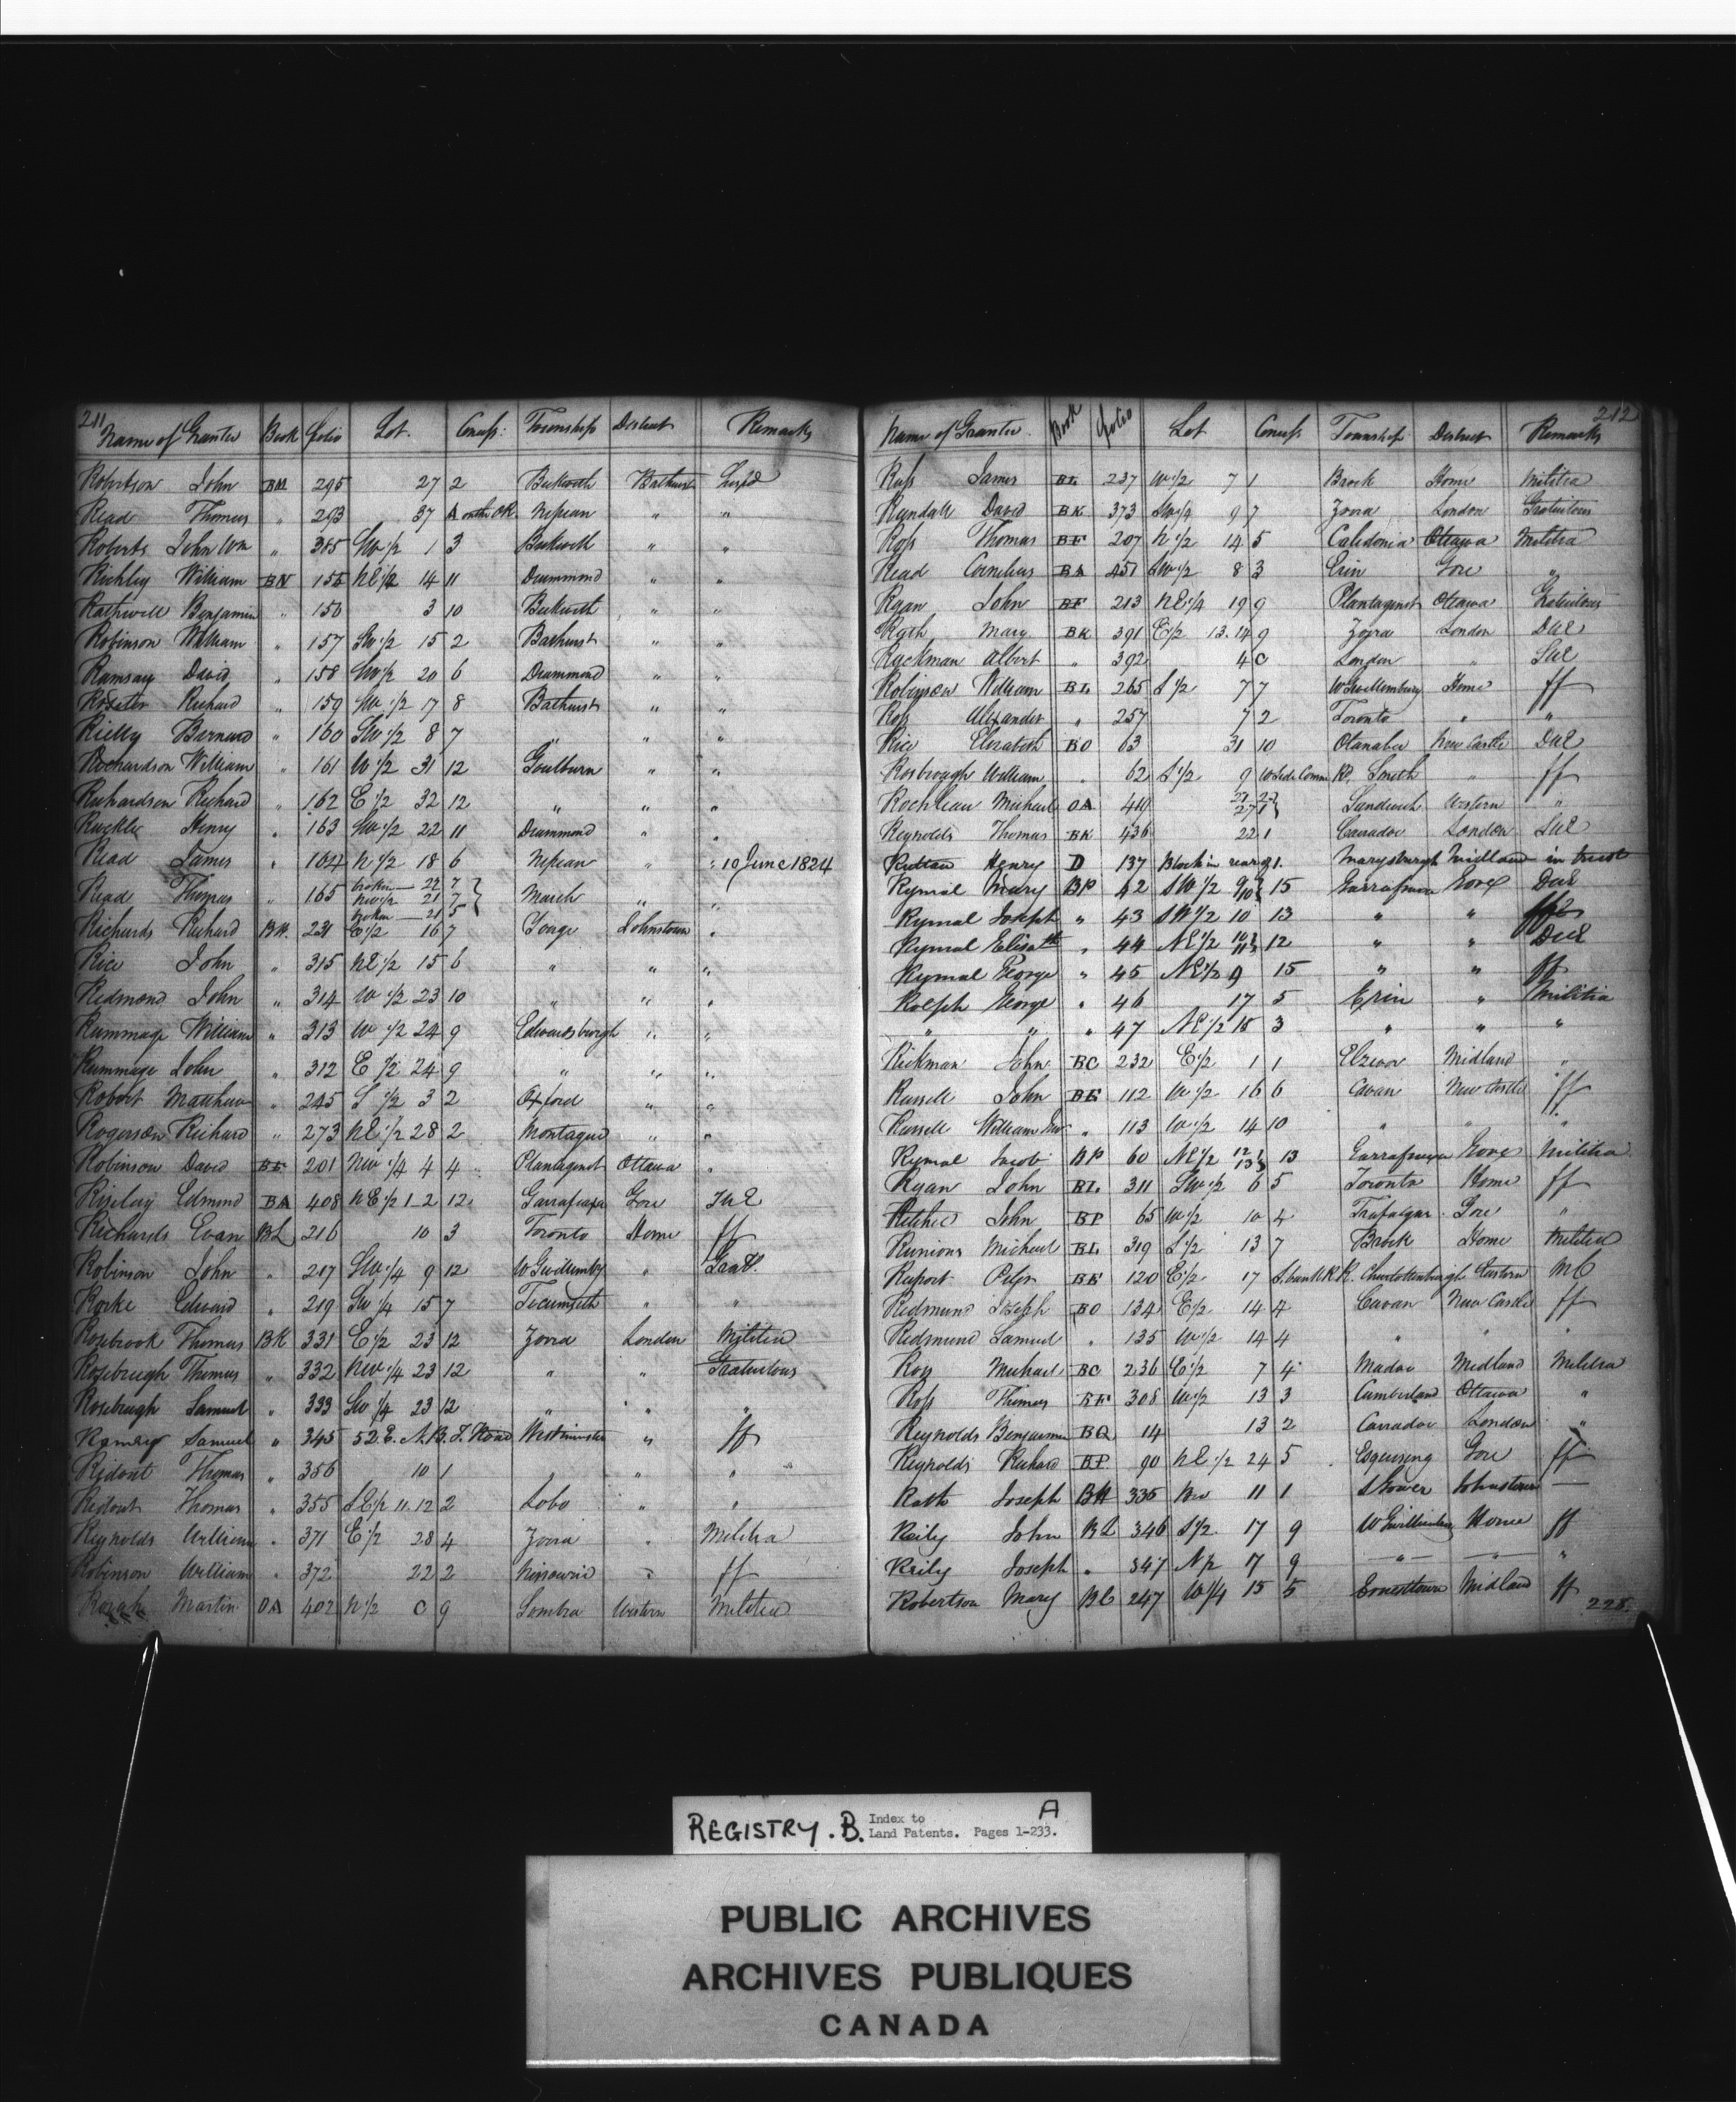 211
Name of Grantee Book Folio Lot. Concess: Township District Remarks
Robertson John BM 295 27 2 Beckwith Bathurst
Read Thomas " 293 37 A on the O.R. Nepean " "
Roberts John Wm " 385 SW 1/2 1 3 Beckwith " "
Richley William BN 155 NE 1/2 14 11 Drummond " "
Rathwell Benjamin " 156 3 10 Beckwith " "
Robinson William " 157 SW 1/2 15 2 Bathurst " "
Ramsay David " 158 SW 1/2 20 6 Drummond " "
Richard " 159 SW 1/2 17 8 Bathurst " "
Rielly Bernard " 160 SW 1/2 8 7 " " "
Richardson William " 161 W 1/2 31 12 Goulburn " "
Richardson Richard " 162 E 1/2 32 12 " " "
Henry " 163 SW 1/2 22 11 Drummond " "
Read James " 164 N 1/2 18 6 Nepean " " 10 June 1824
Read Thomas " 165 broken 22 7 March " "
NW 1/2 21 7
broken 21 5
Richards Richard BH. 231 E 1/2 16 7 Yonge Johnstown "
Rice John " 315 NE 1/2 15 6 " " "
Redmond John " 314 W 1/2 23 10 " " "
Rummage William " 313 W 1/2 24 9 Edwardsburgh " "
Rummage John " 312 E 1/2 24 9 " " "
Robert Matthew " 245 S 1/2 3 2 Oxford " "
Rogerson Richard " 273 NE 1/2 28 2 Montague " "
Robinson David 201 NW 1/4 4 4 Plantagenet Ottawa "
Riseley Edmund BA 408 NE 1/2 1-2 12 Garrafraxa Gore
Richards Evan BL 216 10 3 Toronto Home ff
Robinson John " 217 SW 1/4 9 12 W Gwillimby " Grat.
Rorke Edward " 219 SW 1/4 15 7 Tecumseth " "
Rosebrook Thomas BK 331 E 1/2 23 12 Zorra London Militia
Rosebrugh Thomas " 332 NW 1/4 23 12 " " Gratuitous
Rosebrugh Samuel " 333 SW 1/4 23 12 " " "
Samuel " 345 52 E. N.B.T. Road Westminster " ff
Ridout Thomas " 356 10 1 " " "
Ridout Thomas " 355 SE 1/2 11.12 2 Lobo " "
Reynolds William " 371 E 1/2 28 4 Zorra " Militia
Robinson William " 372 22 2 Nissouri " ff
Martin OA 402 N 1/2 C 9 Sombra Western Militia
212
Name of Grantee Book Folio Lot Concess Township District Remarks
Ross James BL 237 W 1/2 7 1 Brock Home Militia
Rundall David BK 373 SW 1/4 9 7 Zorra London Gratuitous
Ross Thomas BF 207 N 1/2 14 5 Caledonia Ottawa Militia
Read Cornelius BA 451 SW 1/2 8 3 Erin Gore "
Ryan John BF 213 NE 1/4 19 9 Plantagenet Ottawa Gratuitous
Mary BK 391 E 1/2 13.14 9 Zorra London DUE
Ryckman Albert " 392 4 C London " SUE
Robinson William BL 265 S 1/2 7 7 W Gwillembury Home ff
Ross Alexander " 257 7 2 Toronto " "
Rice Elizabeth BO 63 31 10 Otanabee New Castle DUE
Rosbrough William " 62 S 1/2 9 W side Comn RD. Smith " ff
Rochleau Michael OA 410 Sandwich Western "
Reynolds Thomas BK 436 22 1 Carradoc London SUE
Ruttan Henry D 137 Block in rear of 1. Marysburgh Midland in trust
Rymal Mary BP 42 SW 1/2 9/10 15 Garrafraxa Gore DUE
Rymal Joseph " 43 SW 1/2 10 13 " "
Rymal Elisath " 44 NE 1/2 10/11 12 " " DUE
Rymal George " 45 NE 1/2 9 15 " " ff
Rolph George " 46 17 5 Erin " Militia
" " " 47 NE 1/2 18 3 " " "
Rickman John BC 232 E 1/2 1 1 Elzivor Midland "
Russell John 112 W 1/2 16 6 Cavan New Castle ff
Russell William " 113 W 1/2 14 10 " " "
Rymal Jacob BP 60 NE 1/2 12/13 13 Garrafraxa Gore Militia
Ryan John BL 311 SW 1/2 6 5 Toronto Home ff
Ritchie John BP 65 W 1/2 10 4 Trafalgar Gore "
Runions Michael BL 319 S 1/2 13 7 Brock Home Militia
Ruport Peter BE 120 E 1/2 17 S. bank R R. Charlottenburgh Eastern MC
Redmund Joseph BO 134 E 1/2 14 4 Cavan New Castle ff
Redmund Samuel " 135 W 1/2 14 4 " " "
Ross Michael BC 236 E 1/2 7 4 Madoc Midland Militia
Ross Thomas BF 308 W 1/2 13 3 Cumberland Ottawa "
Reynolds Benjamin BQ 14 13 2 Carradoc London "
Reynolds Richard BP 90 NE 1/2 24 5 Esquesing Gore ff
Rath Joseph BH 335 NW 11 1 S Gower Johnstown —
Reily John BL 346 S 1/2 17 9 W Gwillimbury Home ff
Reily Joseph " 347 N 1/2 17 9 — " — — " — "
Robertson Mary BC 247 W 1/4 15 5 Ernesttown Midland ff
228.
REGISTRY. B. Index to Land Patents. Pages 1-233. A
PUBLIC ARCHIVES
ARCHIVES PUBLIQUES
CANADA